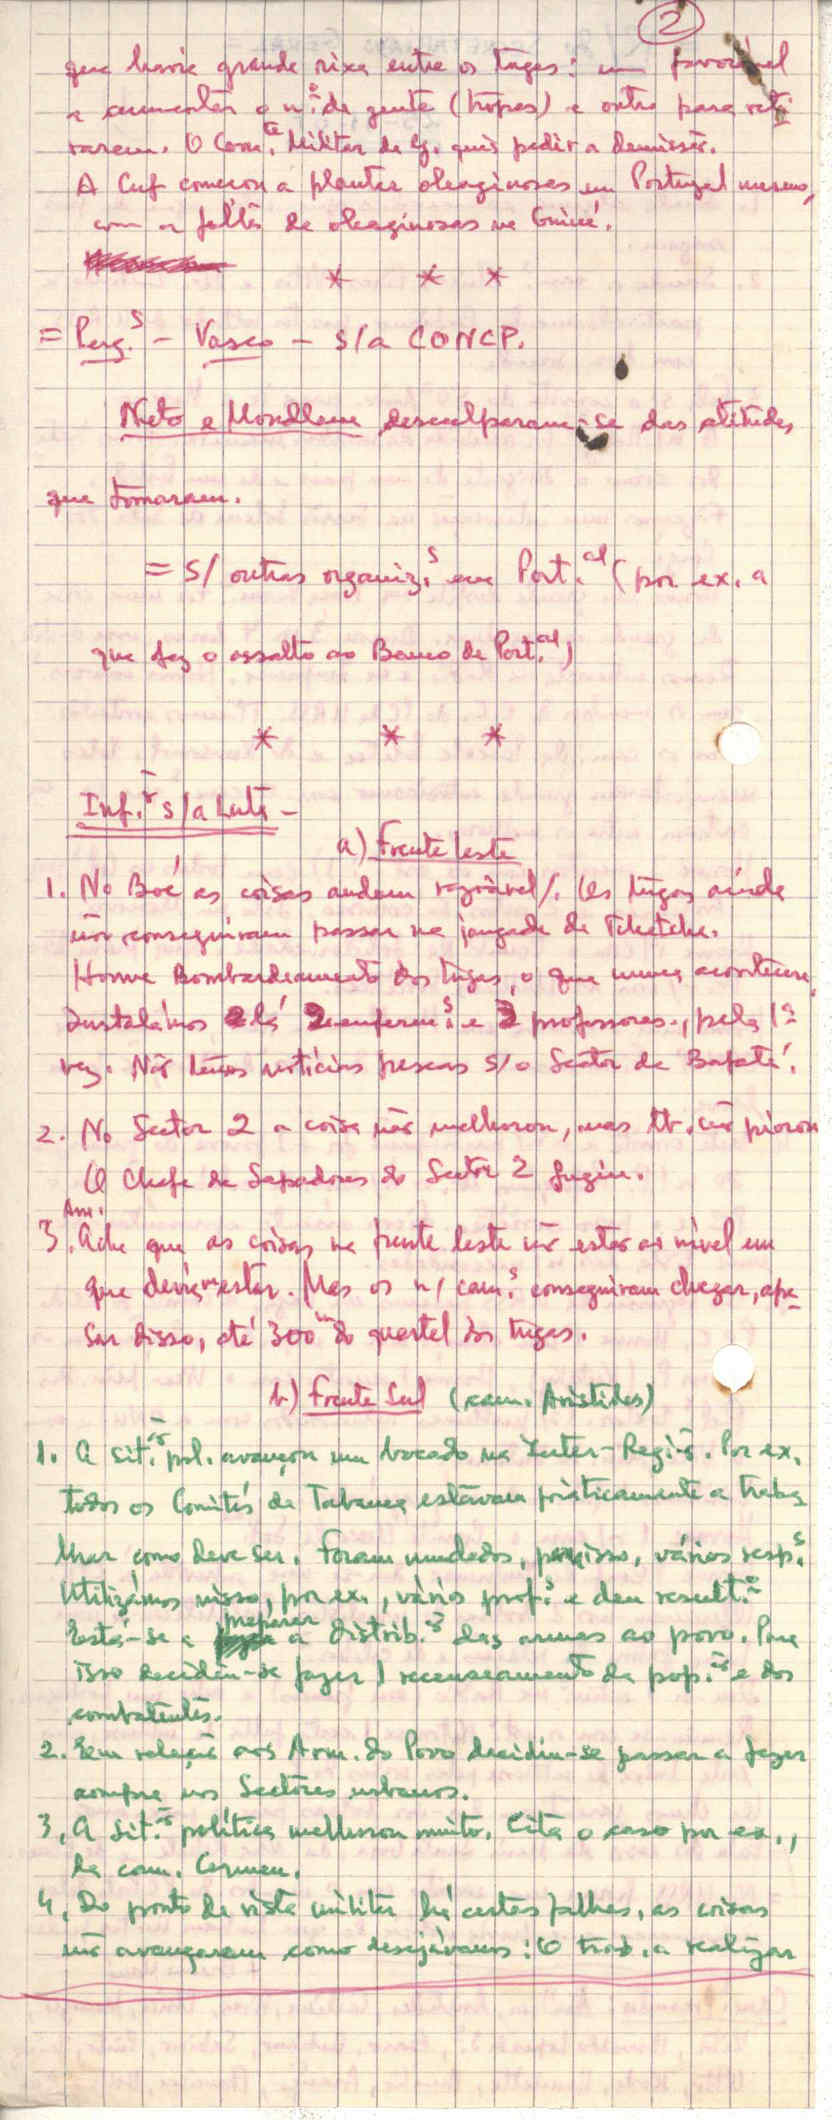 2
que havia grande rixa entre os tugas: um favorável
a aumentar o n.º de gente (tropas) e outro para reti
rarem. O Com.te Militar da G. quis pedir a demissão.
A Cuf começou a plantar oleaginosas em Portugal mesmo,
com a falta de oleaginosas na Guiné.
* * *
= Perg.s - Vasco - s/a CONCP.
Neto e Mondlane desculparam-se das atitudes
que tomaram.
= S/ outras organiz.s em Port.al (por ex. a
que fez o assalto ao Banco de Port.al)
* * *
Inf.ão s/a Luta -
a) Frente Leste
1. No Boé as coisas andam razoável/. Os tugas ainda
não conseguiram passar na jangada de Tchetche.
Houve Bombardeamento dos tugas, o que nunca acontecera.
Instalámos lá 2 enferm.s e 2 professores, pela 1ª
vez. Não temos notícias frescas s/o Sector de Bafatá.
2. No Sector 2 a coisa não melhorou, mas tb. não piorou
O Chefe de Sapadores do Sector 2 fugiu.
Am.
3. Acha que as coisas na frente leste não estão ao nível em
que deviam estar. Mas os n/ cam.s conseguiram chegar, ape-
sar disso, até 300m do quartel dos tugas.
b) Frente Sul (cam. Aristides)
1. A sit.ão pol. avançou um bocado na Inter-Região. Por ex.
todos os Comités de Tabanca estavam pràticamente a traba
lhar como deve ser. Foram mudados, por isso, vários resp.s
Utilizámos nisso, por ex., vários prof.s e deu result.º
Está-se a preparar a distrib.ão das armas ao povo. Para
isso decidiu-se fazer 1 recenseamento da pop.ão e dos
combatentes.
2. Em relação aos Arm. do Povo decidiu-se passar a fazer
compra nos Sectores urbanos.
3. A sit.ão política melhorou muito. Cita o caso por ex.,
da cam. Carmen.
4. Do ponto de vista militar há certas falhas, as coisas
não avançaram como desejávamos: O trab. a realizar